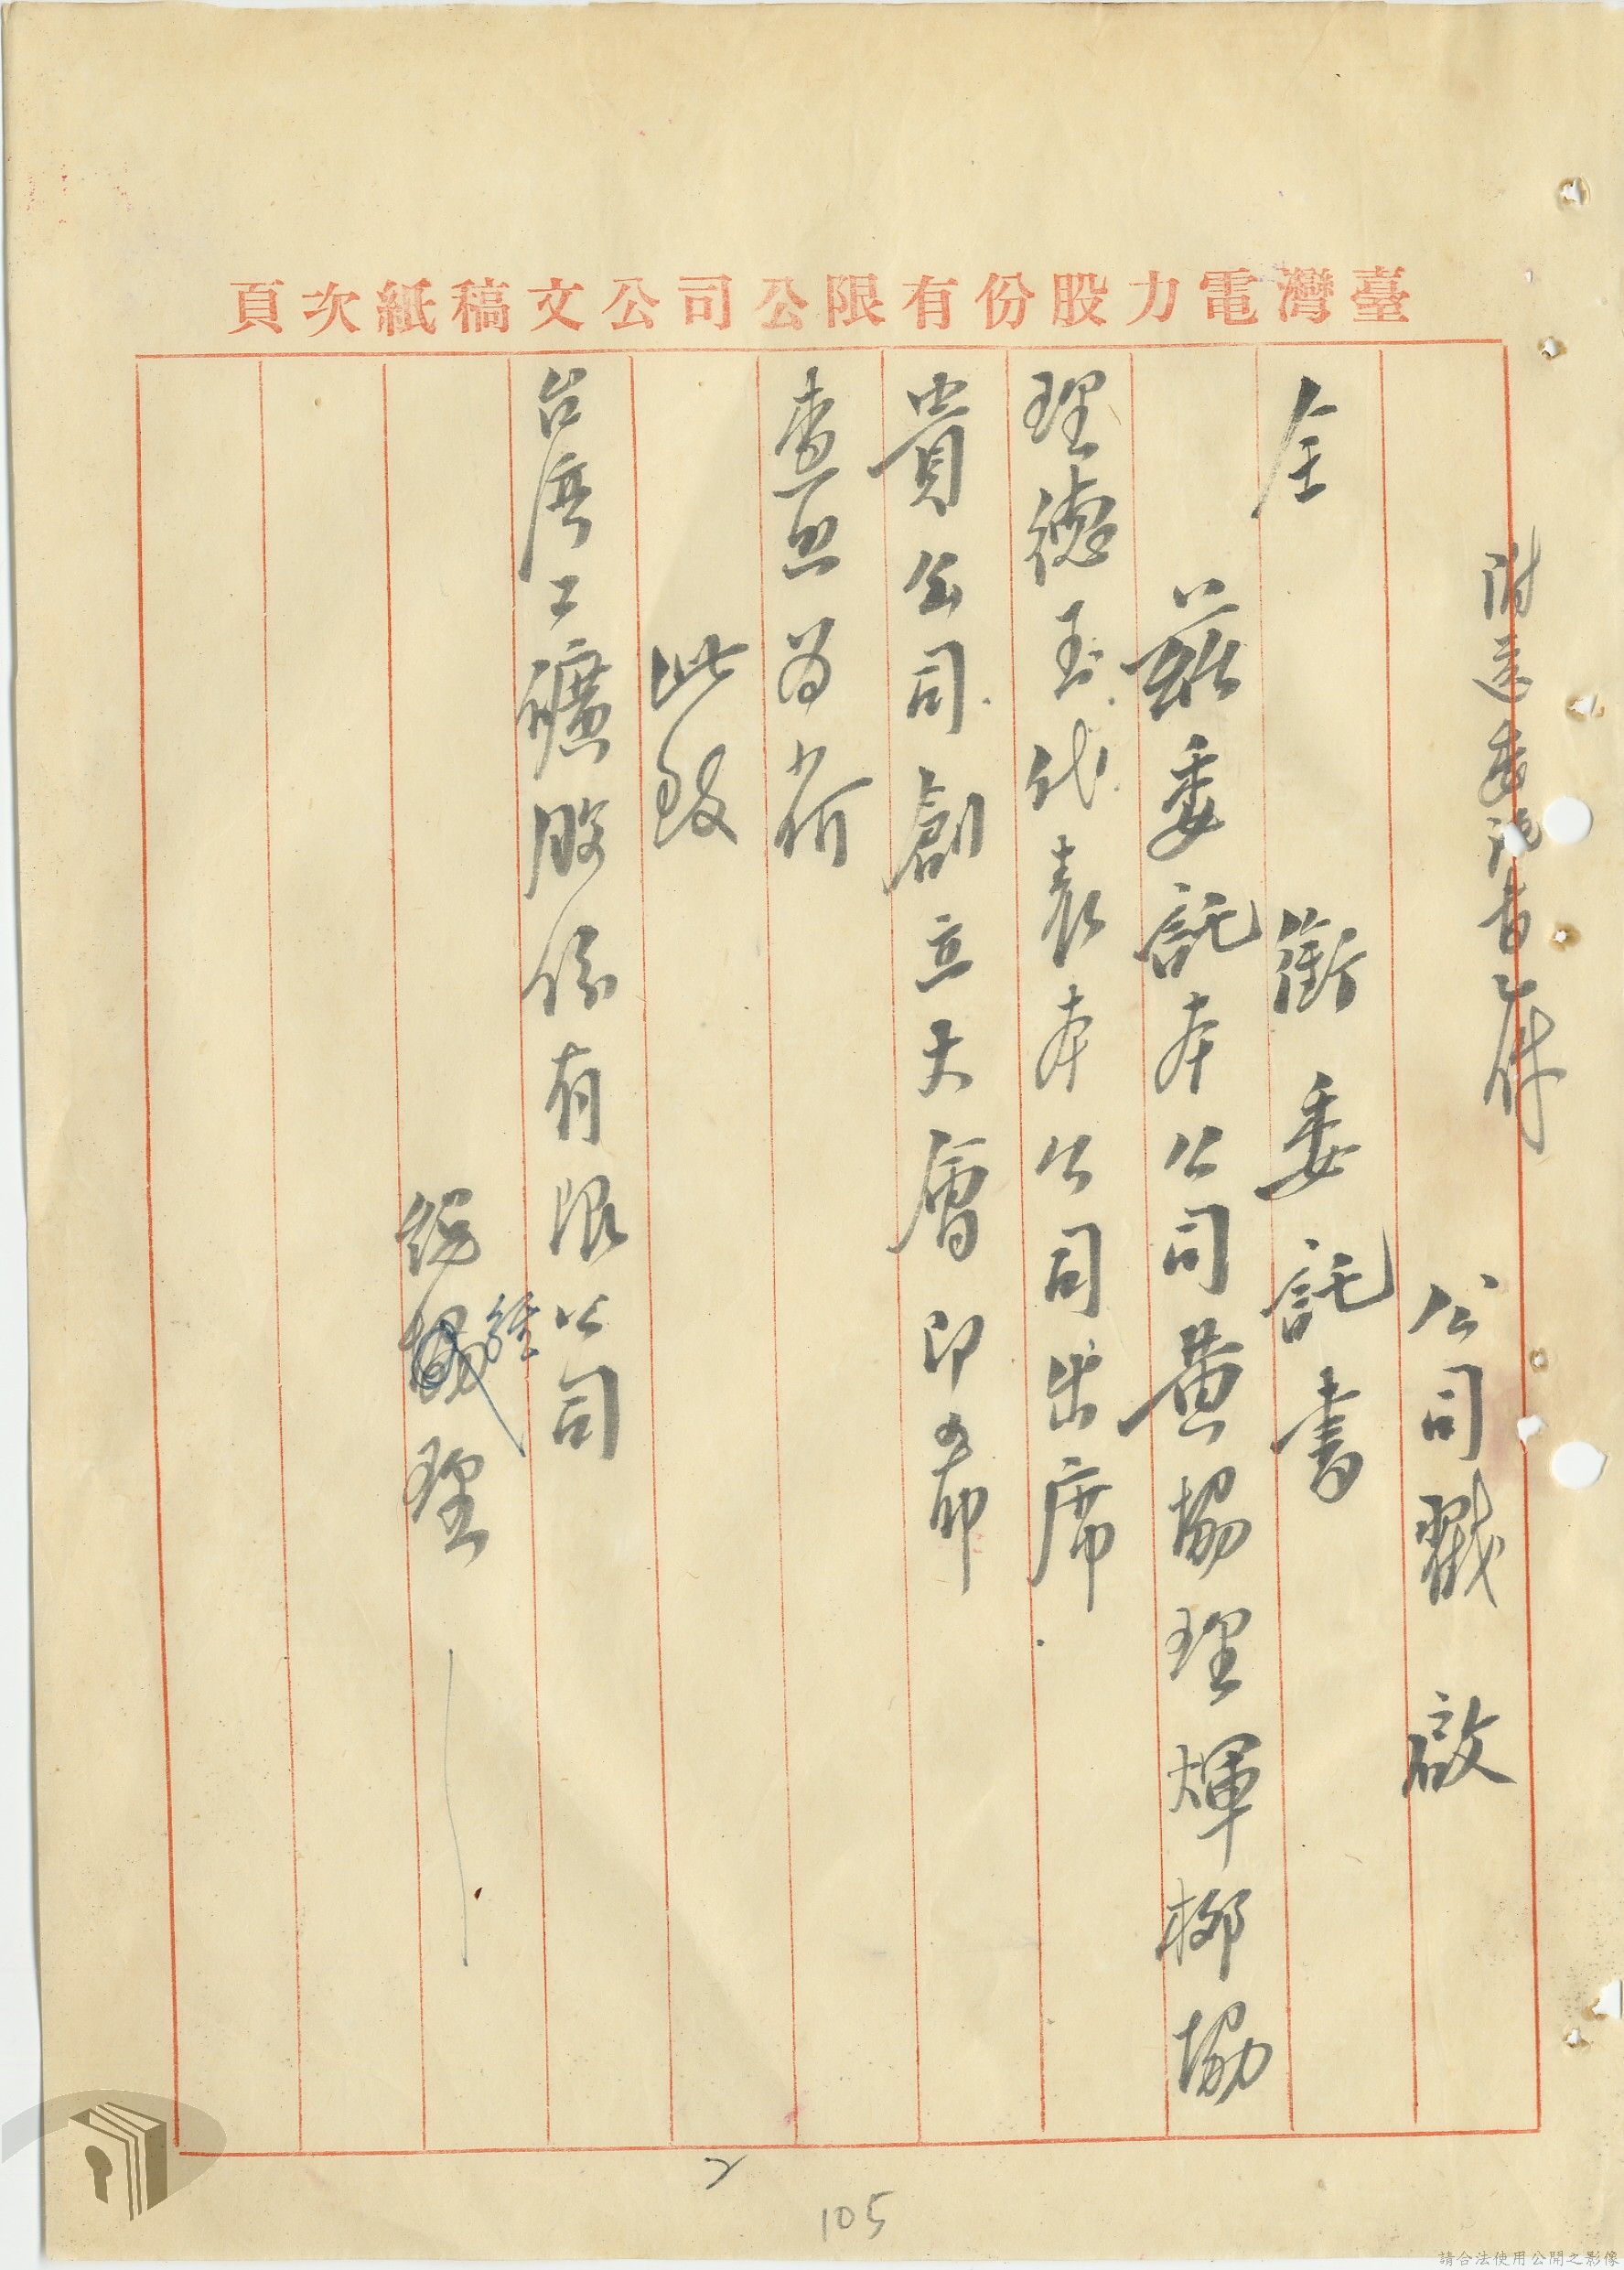 臺灣電力股份有限公司公文稿紙次頁
附送委託書乙件
公司戳 啟
全銜委託書
茲委託本公司黃協理煇柳協
理德玉代表本公司出席
貴公司創立大會即希
查照為荷
此致
台灣工礦股份有限公司
總經理
2
105
請合法使用公開之影像